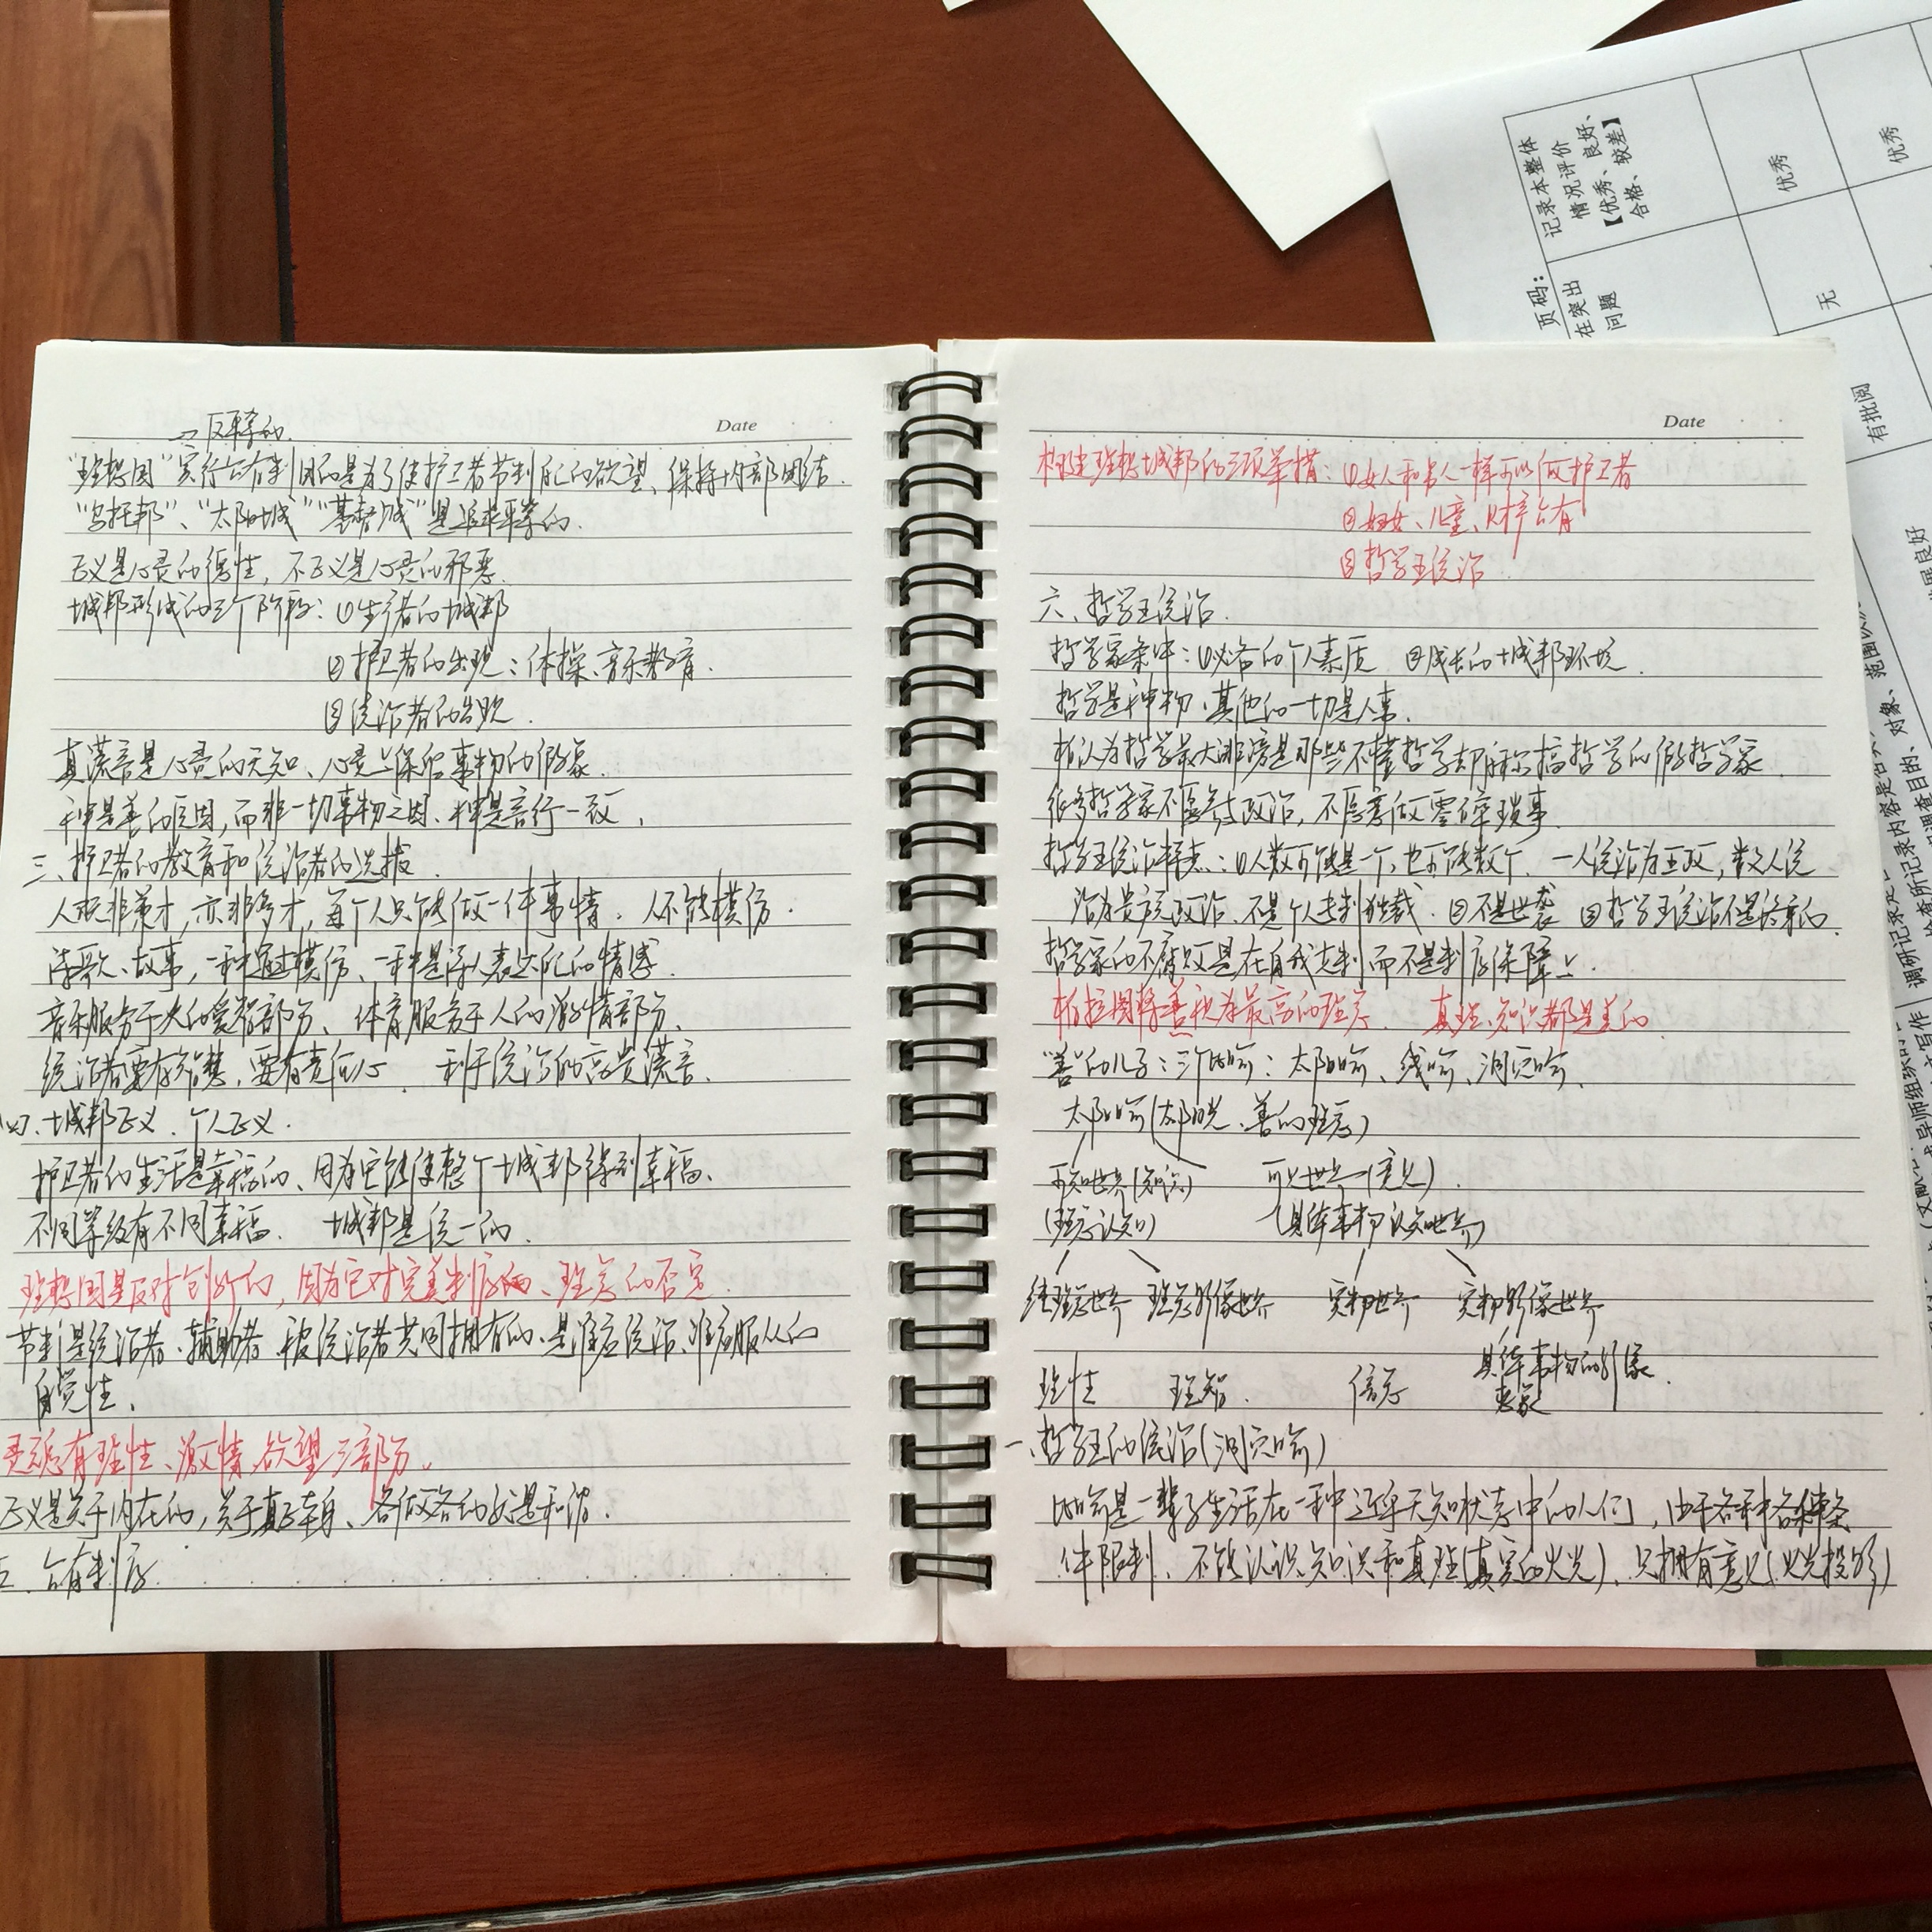 →反平等的.
Date
"理想国"实行公有制目的是为了使护卫者节制自己的欲望、保持内部团结.
"乌托邦"、"太阳城""基督城"是追求平等的.
正义是心灵的德性, 不正义是心灵的邪恶.
城邦形成的三个阶段: ①生产者的城邦
②护卫者的出现: 体操、音乐教育.
③统治者的出现.
真谎言是心灵的无知、心灵上保留事物的假象.
神是善的原因, 而非一切事物之因、神是言行一致.
三、护卫者的教育和统治者的选拔
人既非兼才, 亦非多才, 每个人只能做一件事情. 人不能模仿.
诗歌、故事, 一种通过模仿、一种是诗人表达自己的情感.
音乐服务于人的爱智部分、体育服务于人的激情部分.
统治者要有智慧, 要有责任心. 利于统治的高贵谎言.
四、城邦正义、个人正义.
护卫者的生活是幸福的、因为它能使整个城邦得到幸福.
不同等级有不同幸福. 城邦是统一的.
理想国是反对创新的, 因为它对完美制度的、理念的否定.
节制是统治者、辅助者、被统治者共同拥有的、是谁应统治、谁应服从的
自觉性.
灵魂有理性、激情、欲望三部分.
正义是关于内在的, 关于真正本身、各做各的就是和谐.
五、公有制度
Date
构建理想城邦的三项举措: ①女人和男人一样可以做护卫者
②妇女、儿童、财产公有
③哲学王统治
六、哲学王统治.
哲学家条件: ①必备的个人素质 ②成长的城邦环境.
哲学是神物、其他的一切是人事.
柏认为哲学最大诽谤是那些不懂哲学却自称搞哲学的假哲学家
很多哲学家不愿参与政治, 不愿意做零碎琐事.
哲学王统治特点: ①人数可能是一个, 也可能数个. 一人统治为王政, 数人统
治为贵族政治、不是个人专制独裁. ②不是世袭 ③哲学王统治不是终身的.
哲学家的不腐败是在自我克制而不是制度保障上.
柏拉图将善视为最高的理念. 真理、知识都是善的
"善"的儿子: 三个比喻: 太阳喻、线喻、洞穴喻.
太阳喻(太阳光、善的理念)
可知世界(知识) 可见世界(意见).
(理念认知) (具体事物认知世界)
纯理念世界 理念影像世界 实物世界 实物影像世界
具体事物的影像.
理性 理智. 信念 想象
一、哲学王的统治(洞穴喻)
比喻是一辈子生活在一种近乎无知状态中的人们, 由于各种各样条
件限制、不能认识知识和真理(真实的火光)、只拥有意见(火光投影)
页码:
在突出
问题
记录本整体
情况评价
【优秀、良好、
合格、较差】
无
优秀
优秀
有批阅